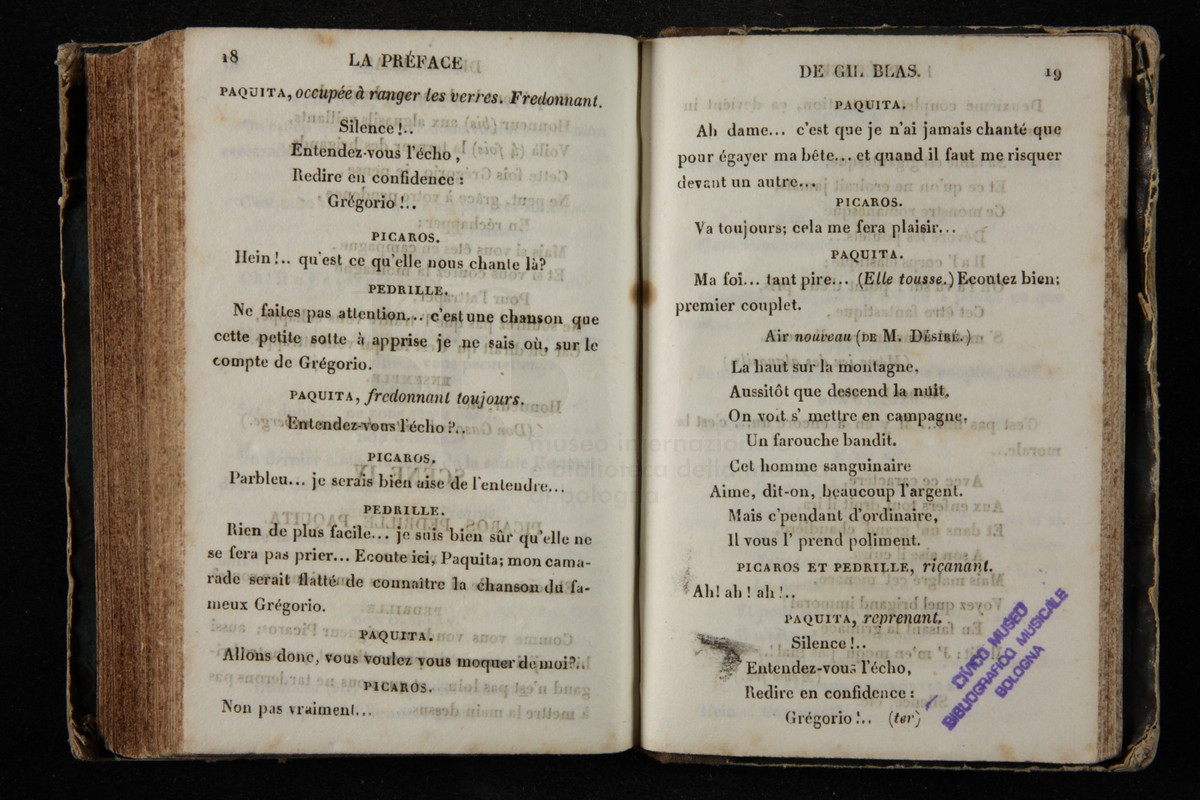 18 LA PRÉFACE
PAQUITA, occupée à ranger les verres. Fredonnant.
Silence !..
Entendez-vous l'écho ,
Redire en confidence :
Grégorio !..
PICAROS.
Hein !.. qu'est ce qu'elle nous chante là?
PEDRILLE.
Ne faites pas attention... c'est une chanson que
cette petite sotte à apprise je ne sais où, sur le
compte de Grégorio.
PAQUITA, fredonnant toujours.
Entendez-vous l'écho ?..
PICAROS.
Parbleu... je serais bien aise de l'entendre...
PEDRILLE.
Rien de plus facile... je suis bien sûr qu'elle ne
se fera pas prier... Ecoute ici, Paquita; mon cama-
rade serait flatté de connaître la chanson du fa-
meux Grégorio.
PAQUITA.
Allons donc, vous voulez vous moquer de moi?..
PICAROS.
Non pas vraiment...
DE GIL BLAS. 19
PAQUITA.
Ah dame... c'est que je n'ai jamais chanté que
pour égayer ma bête... et quand il faut me risquer
devant un autre...
PICAROS.
Va toujours; cela me fera plaisir...
PAQUITA.
Ma foi... tant pire... (Elle tousse.) Ecoutez bien;
premier couplet.
Air nouveau (DE M. DÉSIRÉ.)
La haut sur la montagne,
Aussitôt que descend la nuit,
On voit s' mettre en campagne,
Un farouche bandit.
Cet homme sanguinaire
Aime, dit-on, beaucoup l'argent.
Mais c'pendant d'ordinaire,
Il vous l' prend poliment.
PICAROS ET PEDRILLE, riçanant.
Ah! ah ! ah !..
PAQUITA, reprenant.
Silence !..
Entendez-vous l'écho,
Redire en confidence :
Grégorio !.. (ter)
CIVICO MUSEO
BIBLIOGRAFICO MUSICALE
BOLOGNA
museo internazionale
biblioteca della
di bologna